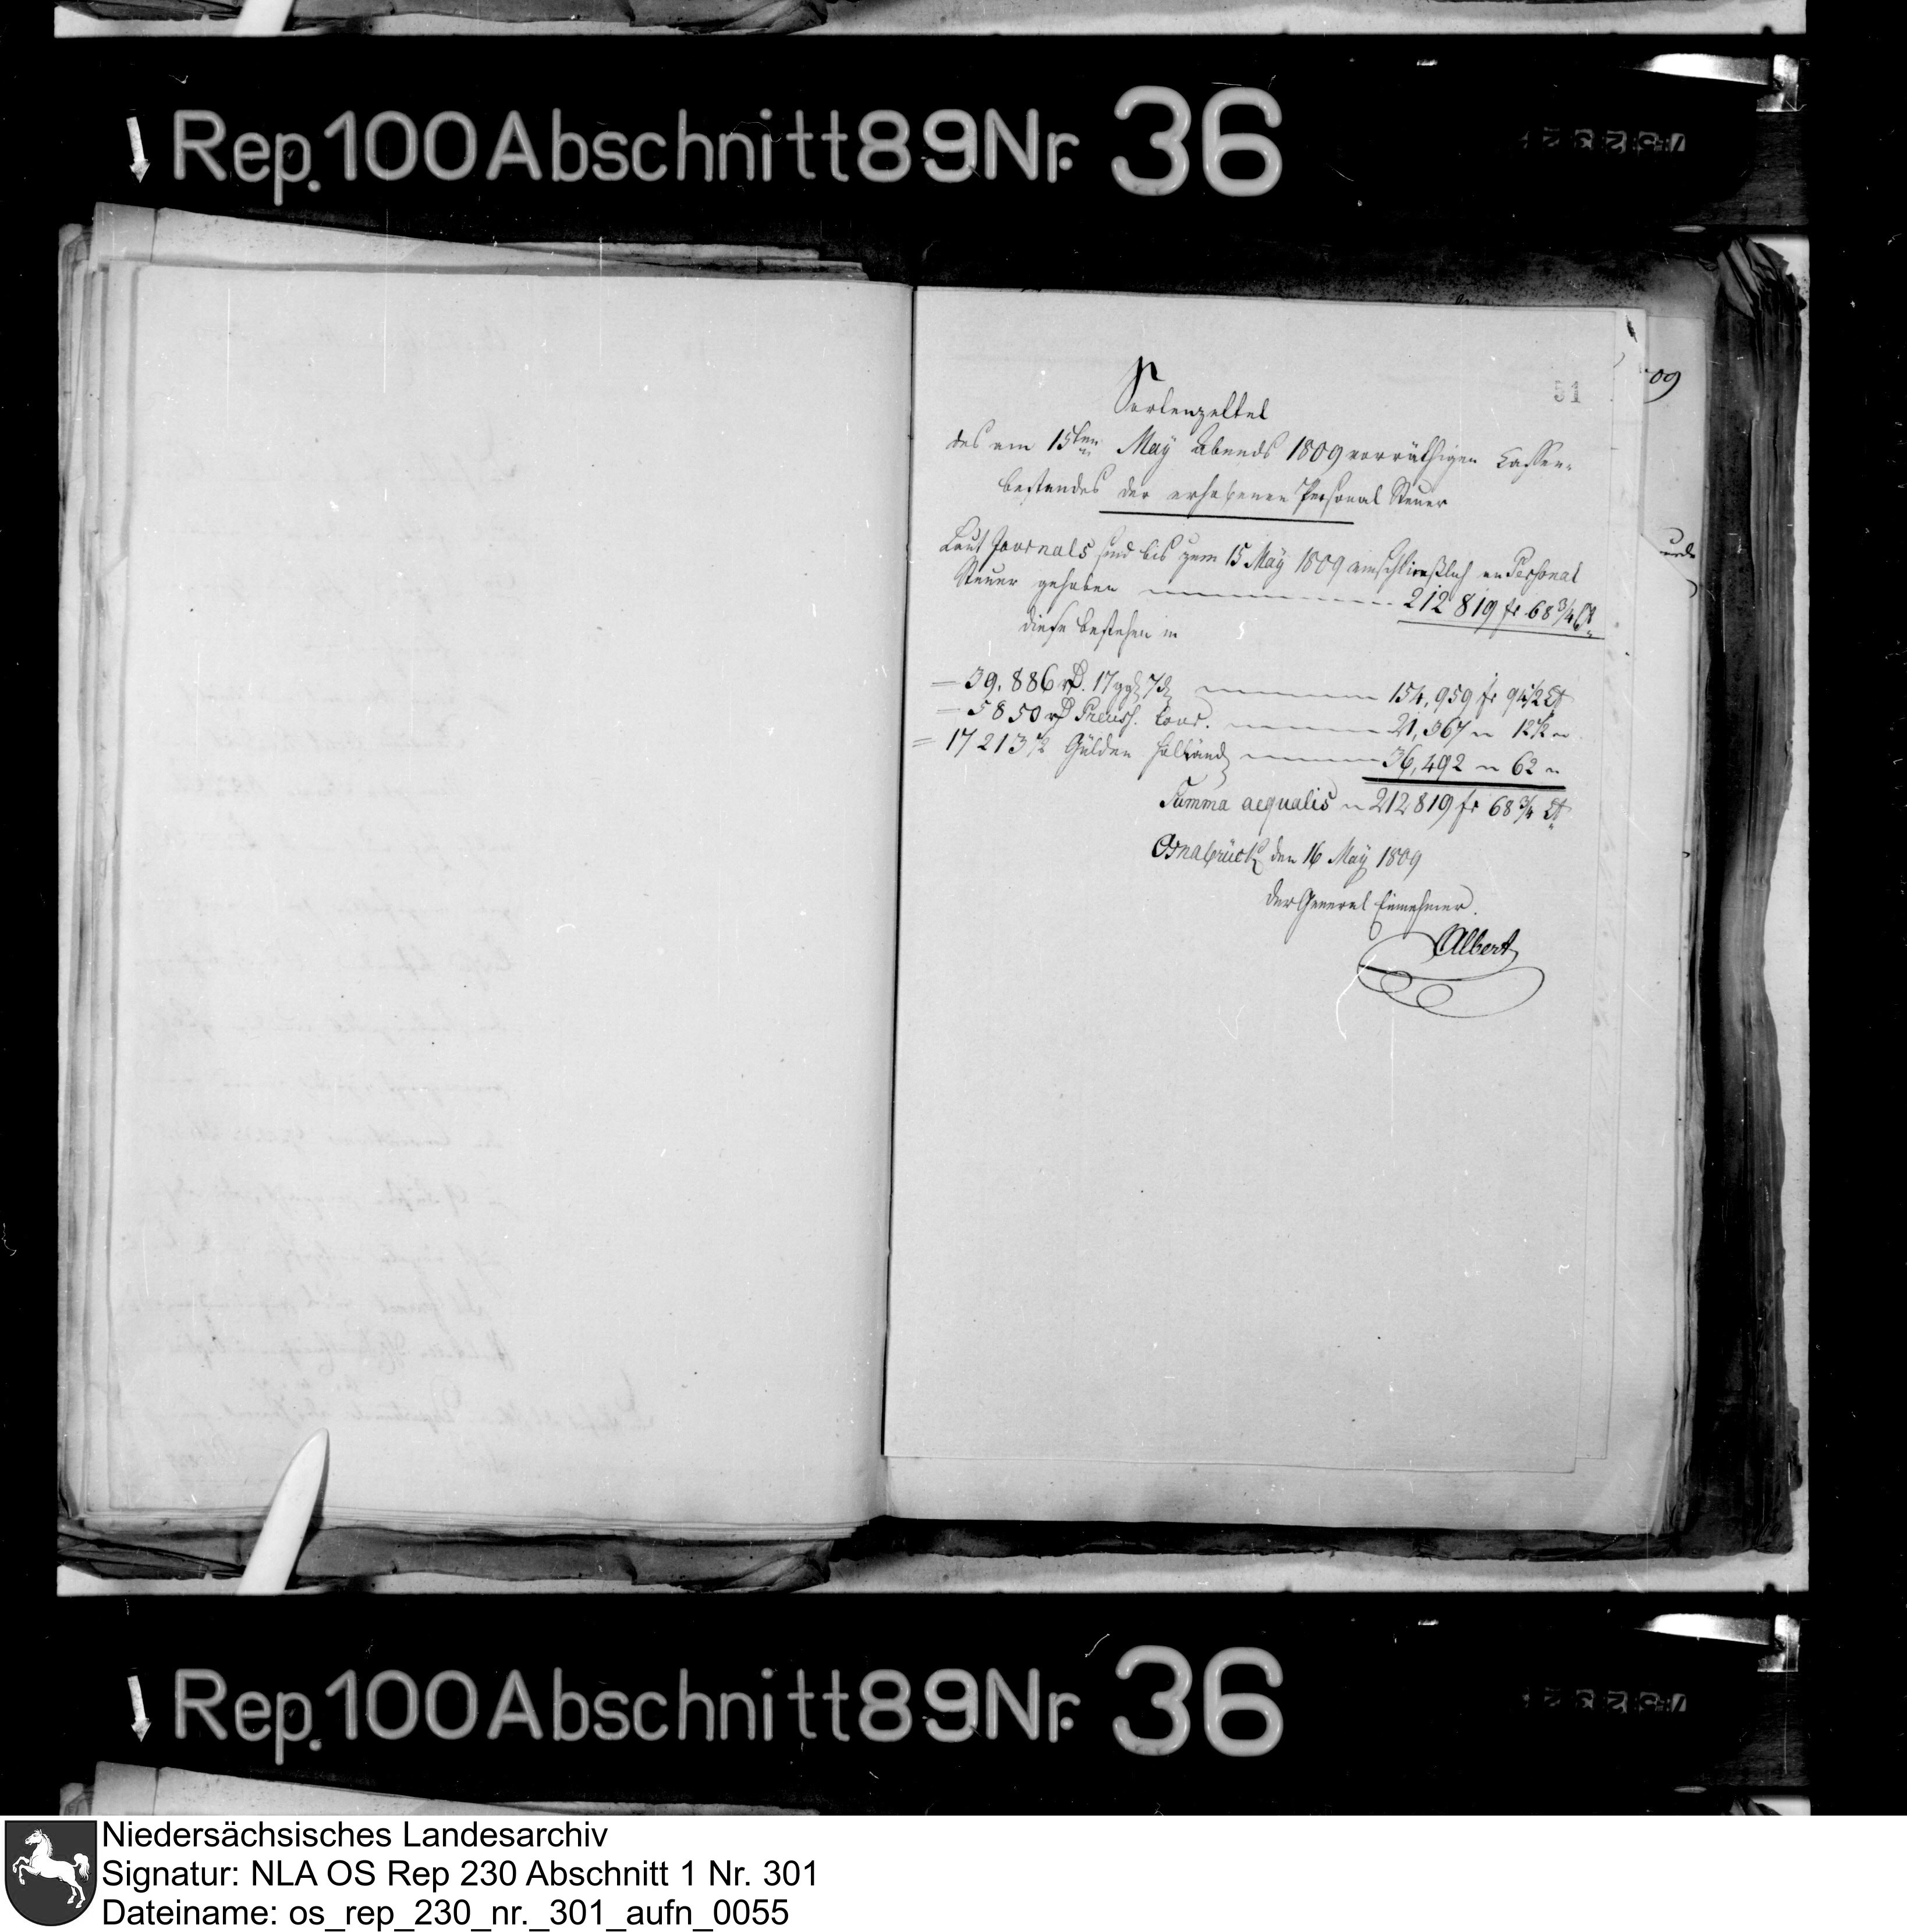 Rep.100 Abschnitt 89 Nr. 36
51
09
Sortenzettel
des am 15ten May Abends 1809 vorräthigen Cassen-
bestandes der erhobenen Personal Steuer
Laut Journals sind bis zum 15 May 1809 einschließlich an Personal
Steuer gehoben 212 819 fr 68 3/4 Ct
diese bestehen in
= 39,886 rℓ. 17 ggl 7 d 154,959 fr 94 1/2 Ct
= 5850 rℓ Preuss. Cour. 21,367 " 12 1/2 "
= 17 213 1/2 Gülden holländ 36,492 " 62 "
Summa aequalis " 212 819 fr 68 3/4 Ct
Osnabrück den 16 May 1809
der General Einnehmer.
Albert
Rep.100 Abschnitt 89 Nr. 36
Niedersächsisches Landesarchiv
Signatur: NLA OS Rep 230 Abschnitt 1 Nr. 301
Dateiname: os_rep_230_nr._301_aufn_0055